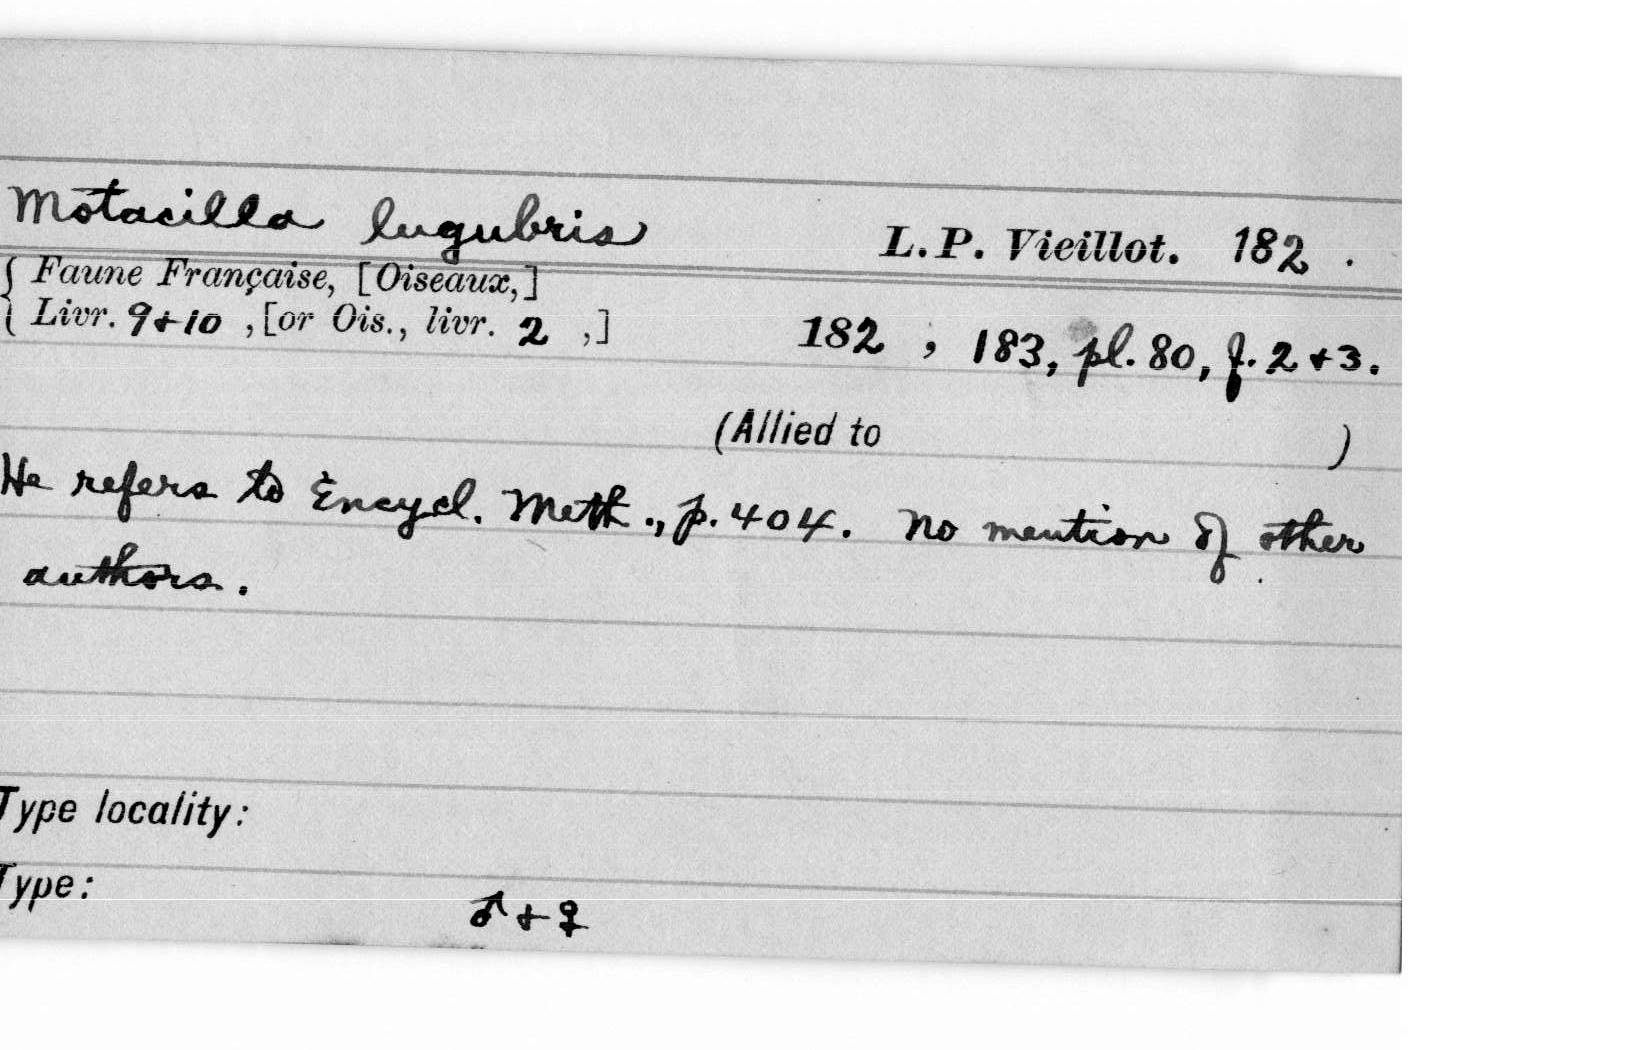 Motacilla lugubris L. P. Vieillot. 182 .
Faune Française, [Oiseaux,]
Livr. 9+10 ,[or Ois., livr. 2 ,] 182 , 183, pl. 80, f. 2+3.
(Allied to )
He refers to Encycl. Meth., p. 404. No mention of other
authors.
Type locality:
Type:
♂+♀